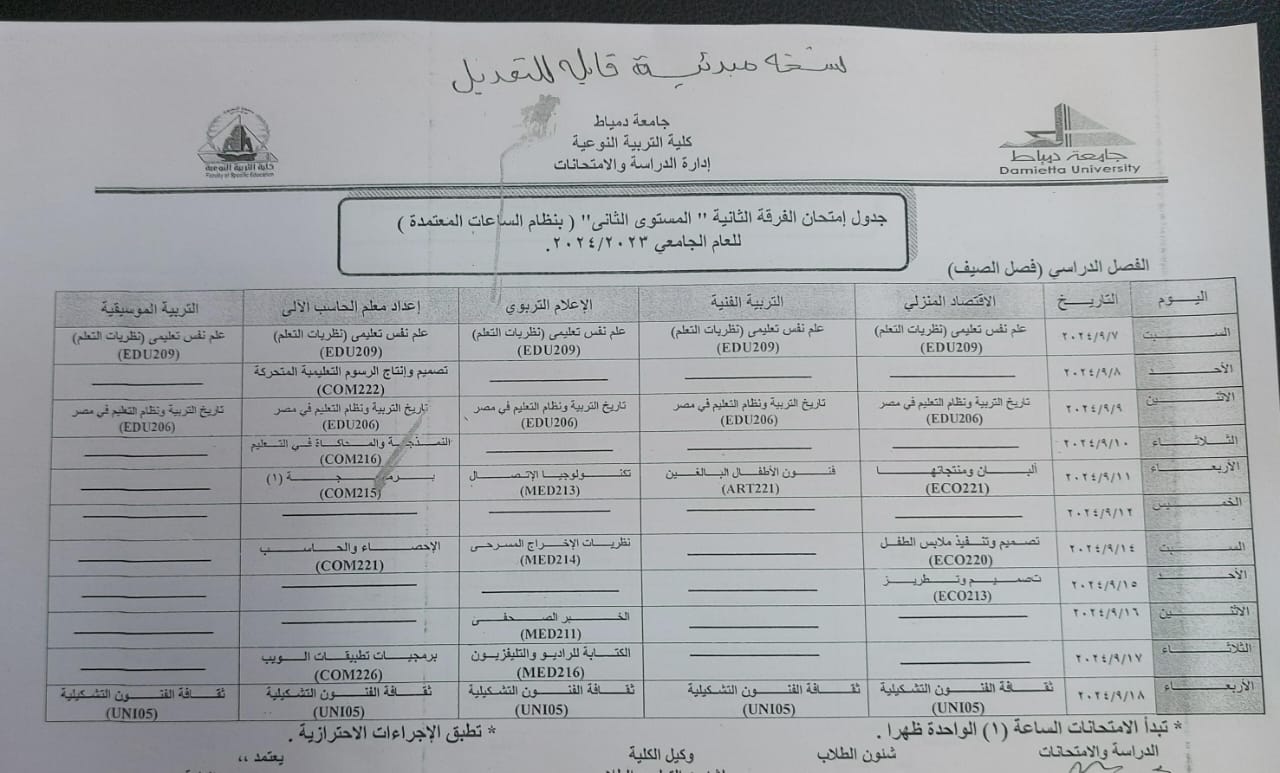 نسخه مبدئية قابله للتعديل
جامعة دمياط
كلية التربية النوعية
إدارة الدراسة والامتحانات
جامعة دمياط
Damietta University
كلية التربية النوعية
Faculty of Specific Education
جدول إمتحان الفرقة الثانية " المستوى الثانى" ( بنظام الساعات المعتمدة )
للعام الجامعي ٢٠٢٤/٢٠٢٣.
الفصل الدراسي (فصل الصيف)
اليوم التاريخ الاقتصاد المنزلي التربية الفنية الإعلام التربوي إعداد معلم الحاسب الآلى التربية الموسيقية
السبت ٢٠٢٤/٩/٧ علم نفس تعليمى (نظريات التعلم) علم نفس تعليمى (نظريات التعلم) علم نفس تعليمى (نظريات التعلم) علم نفس تعليمى (نظريات التعلم) علم نفس تعليمى (نظريات التعلم)
(EDU209) (EDU209) (EDU209) (EDU209) (EDU209)
الأحد ٢٠٢٤/٩/٨ تصميم وإنتاج الرسوم التعليمية المتحركة
(COM222)
الاثنين ٢٠٢٤/٩/٩ تاريخ التربية ونظام التعليم في مصر تاريخ التربية ونظام التعليم في مصر تاريخ التربية ونظام التعليم في مصر تاريخ التربية ونظام التعليم في مصر تاريخ التربية ونظام التعليم في مصر
(EDU206) (EDU206) (EDU206) (EDU206) (EDU206)
الثلاثاء ٢٠٢٤/٩/١٠ النمذجة والمحاكاة في التعليم
(COM216)
الأربعاء ٢٠٢٤/٩/١١ ألبان ومنتجاتها فنون الأطفال البالغين تكنولوجيا الإتصال برمجة (١)
(ECO221) (ART221) (MED213) (COM215)
الخميس ٢٠٢٤/٩/١٢
السبت ٢٠٢٤/٩/١٤ تصميم وتنفيذ ملابس الطفل نظريات الإخراج المسرحى الإحصاء والحاسب
(ECO220) (MED214) (COM221)
الأحد ٢٠٢٤/٩/١٥ تصميم وتطريز
(ECO213)
الاثنين ٢٠٢٤/٩/١٦ الخبر الصحفى
(MED211)
الثلاثاء ٢٠٢٤/٩/١٧ الكتابة للراديو والتليفزيون برمجيات تطبيقات الويب
(MED216) (COM226)
الأربعاء ٢٠٢٤/٩/١٨ ثقافة الفنون التشكيلية ثقافة الفنون التشكيلية ثقافة الفنون التشكيلية ثقافة الفنون التشكيلية ثقافة الفنون التشكيلية
(UNI05) (UNI05) (UNI05) (UNI05) (UNI05)
* تبدأ الامتحانات الساعة (١) الواحدة ظهرا . * تطبق الإجراءات الاحترازية .
الدراسة والامتحانات شئون الطلاب وكيل الكلية يعتمد ،،